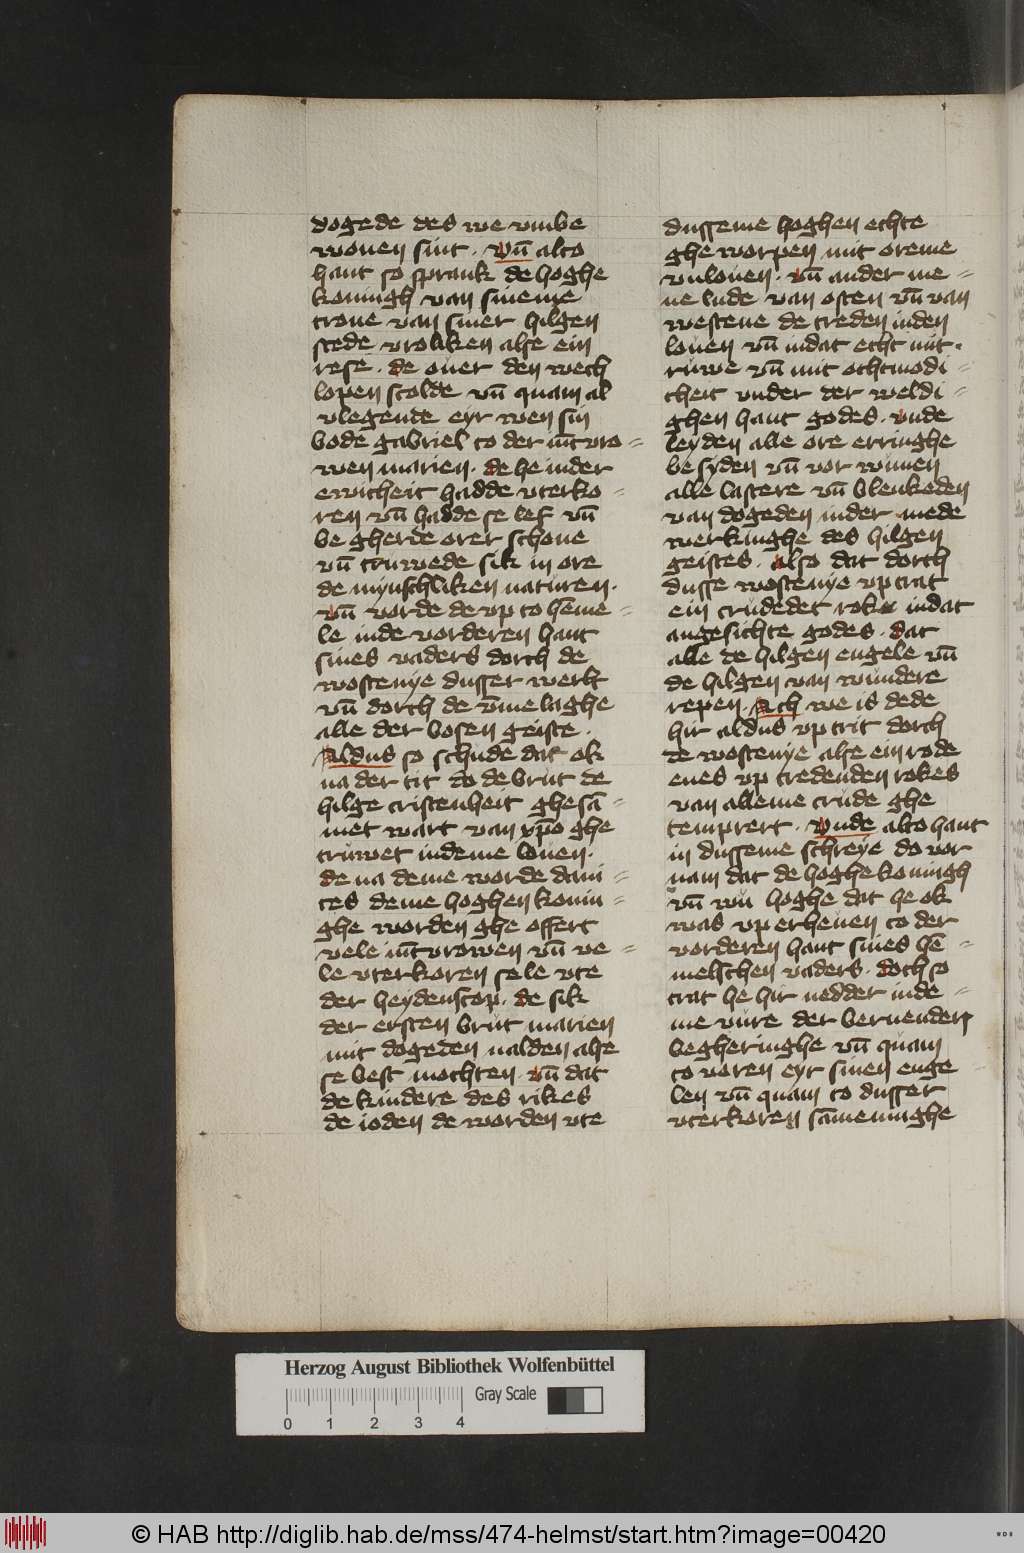 dogede des we vmbe
wonen sint · vn̄ alto
hant so sprank de hoghe
koningh van sineme
trone van siner hilgen
stede vroliken alse ein
rese · de ouer den wech
lopen scolde vn̄ quam al
vlegende eyr wen sin
bode gabriel to der iūcvro =
wen marien · de he inder
ewicheit hadde vterko =
ren vn̄ hadde se lef vn̄
be gherde orer schone
vn̄ truwede sik in ore
de mynschliken naturen ·
vn̄ vorde de vp to hēme =
le inde vorderen hant
sines vaders dorch de
wostenye dusser werlt
vn̄ dorch de v̄me laghe
alle der bosen geiste ·
Aldus so schude dat ok
na der tit do de brut de
hilge cristenheit ghesā =
met wart van xp̄o ghe
truwet indeme louen ·
de na deme worde daui =
tes deme hoghen konin =
ghe worden ghe offert
vele iūcvrowen vn̄ ve =
le vterkoren sele vte
der heydenscop · de sik
der ersten brut marien
mit dogeden nalden alse
se best mochten · vn̄ dat
de kindere des rikes
de ioden de worden vte
dusseme hoghen echte
ghe worpen mit oreme
vnlouen · vn̄ ander me =
ne lude van osten vn̄ van
westene de treden inden
louen vn̄ indat echt mit ·
ruwe vn̄ mit othmodi =
cheit vnder der weldi =
ghen hant godes · vnde
leyden alle ore erringhe
be syden vn̄ vor winnen
alle lastere vn̄ blenkeden
van dogeden inder mede
werkinghe des hilgen
geistes · also dat dorch
dusse wostenye vp trat
ein crudedet rok indat
angesichte godes · dat
alle de hilgen engele vn̄
de hilgen van wundere
repen · Ach we is dede
hir aldus vp trit dorch
de wostenye alse ein rode
enes vp tredenden rokes
van alleme crude ghe
temprert · Vnde alto hant
in dusseme schreye do vor
nam dat de hoghe koningh
vn̄ wu hoghe dat he ok
was vp erheuen to der
vorderen hant sines hē =
melschen vaders · doch so
trat he hir nedder inde =
me vure der bernenden
begheringhe vn̄ quam
to voren eyr sinen enge
len vn̄ quam to dusser
vterkoren sāmeninghe
Herzog August Bibliothek Wolfenbüttel
0 1 2 3 4
Gray Scale
© HAB http://diglib.hab.de/mss/474-helmst/start.htm?image=00420